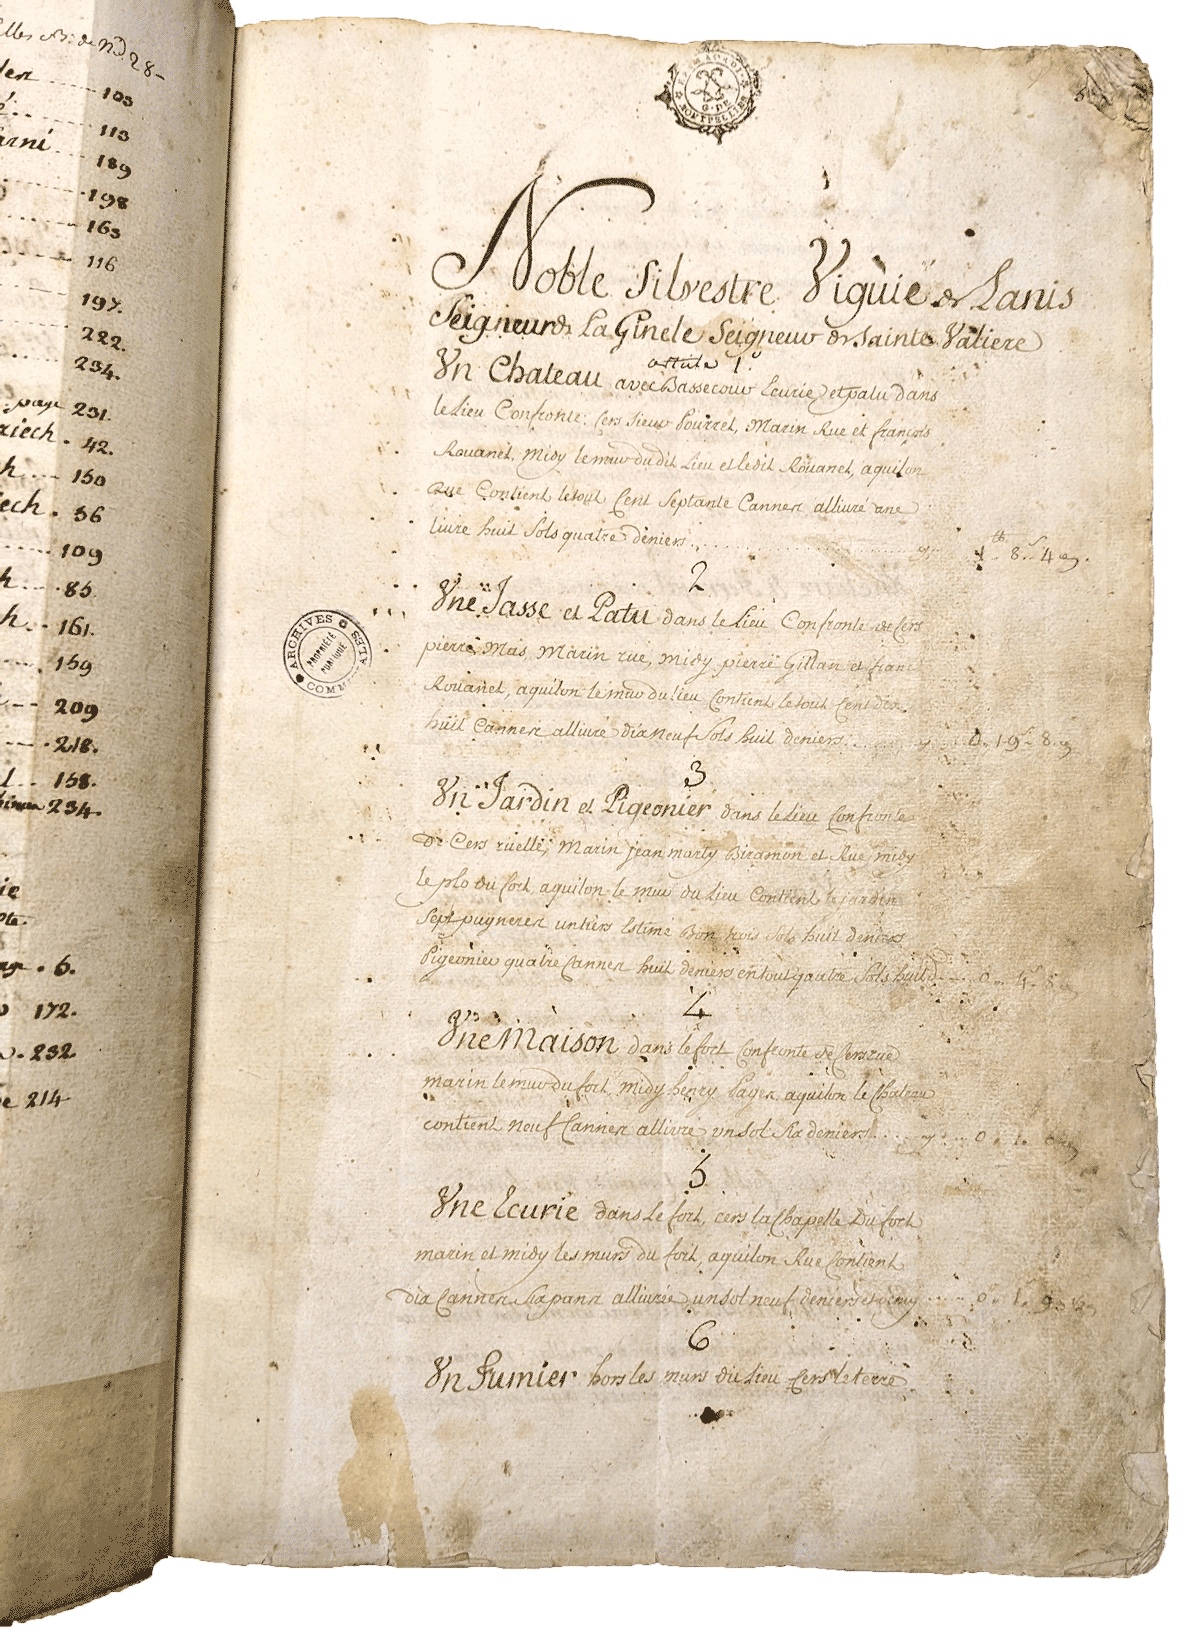 103
113
arni 189
198
163
116
197.
222.
234.
page 231.
riech 42.
150
iech 36
109
85.
161.
159
209
218.
158.
234.
6.
172.
232
214
MONTPELLIER
Noble Silvestre Viguie de Lanis
Seigneur de La Ginele Seigneur de Sainte Valiere
article 1.
Un Chateau avec Bassecour Ecurie et patu dans
le Lieu Confronte: Cers Sieur Pourret, Marin Rue et françois
Rouanet, Midy le mur dudit Lieu et ledit Rouanet, aquilon
Rue Contient le tout Cent Septante Cannes allivré une
livre huit Sols quatre deniers 1 lb 8 s 4 d
2
Une Jasse et Patu dans le Lieu Confronte de Cers
pierre Mas, Marin rue, midy pierre Gillan et franc
Rouanet, aquilon le mur du lieu Contient le tout Cent dix
huit Cannes allivré dix neuf Sols huit deniers 0. 19 s 8 d
3
Un Jardin et Pigeonier dans le Lieu Confronte
de Cers ruelle, Marin jean marty Biramon et Rue midy
le plo du fort, aquilon le mur du Lieu Contient le jardin
Sept pugneres un tiers Estimé Bon trois Sols huit deniers
Pigeonier quatre Cannes huit deniers en tout quatre Sols huit d 0 4 s 8
4
Une Maison dans le fort Confronte de Cers rue
marin le mur du fort, midy henry Pages aquilon le Chateau
contient neuf Cannes allivré un Sol Six deniers 0. 1. 6
5
Une Ecurie dans Le fort, cers la Chapelle Du fort
marin et midy les murs du fort, aquilon Rue Contient
dix Cannes Six pans allivrée un sol neuf deniers et demy 0. 1. 9. ½
ARCHIVES COMM ALES
PROPRIÉTÉ
PUBLIQUE
6
Un Fumier hors les murs du Lieu Cers le terre